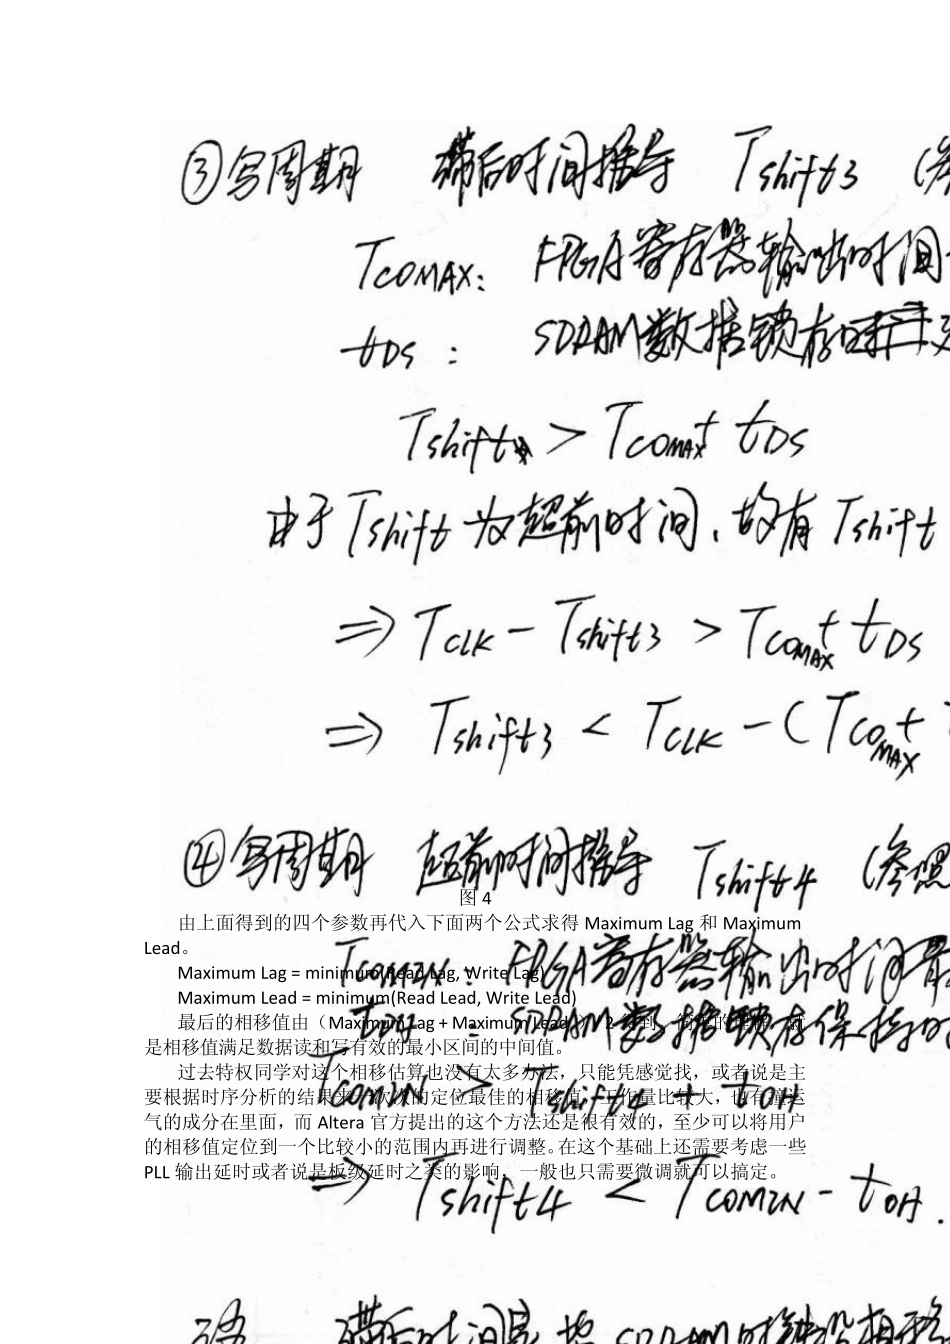 ③写周期 滞后时间推导 Tshift3 (参
TCOMAX: FPGA寄存器输出时间
tDS: SDRAM数据锁存
Tshift > TCOMAX + tDS
由于Tshift为超前时间,故有Tshift
⇒ TCLK - Tshift3 > TCOMAX + tDS
⇒ Tshift3 < TCLK - (TCOMAX +
④写周期 超前时间推导 Tshift4 (参照
图 4
由上面得到的四个参数再代入下面两个公式求得 Maximum Lag 和 Maximum
Lead。
TCOMIN: FPGA寄存器输出时间最
Maximum Lag = minimum(Read Lag, Write Lag)
Maximum Lead = minimum(Read Lead, Write Lead)
: SDRAM数据锁存保持时
最后的相移值由（Maximum Lag + Maximum Lead 2 得到
是相移值满足数据读和写有效的最小区间的中间值。
过去特权同学对这个相移估算也没有太多方法，只能凭感觉找，或者说是主
TCOMIN > Tshift4 + tOH
要根据时序分析的结果来 定位最佳的相移值 量比较大，也有 运
气的成分在里面，而 Altera 官方提出的这个方法还是很有效的，至少可以将用户
的相移值定位到一个比较小的范围内再进行调整。在这个基础上还需要考虑一些
PLL 输出延时或者说是板级延时之类的影响，一般也只需要微调就可以搞定。
⇒ Tshift4 < TCOMIN - tOH.
滞后时间是 SDRAM时钟 相移